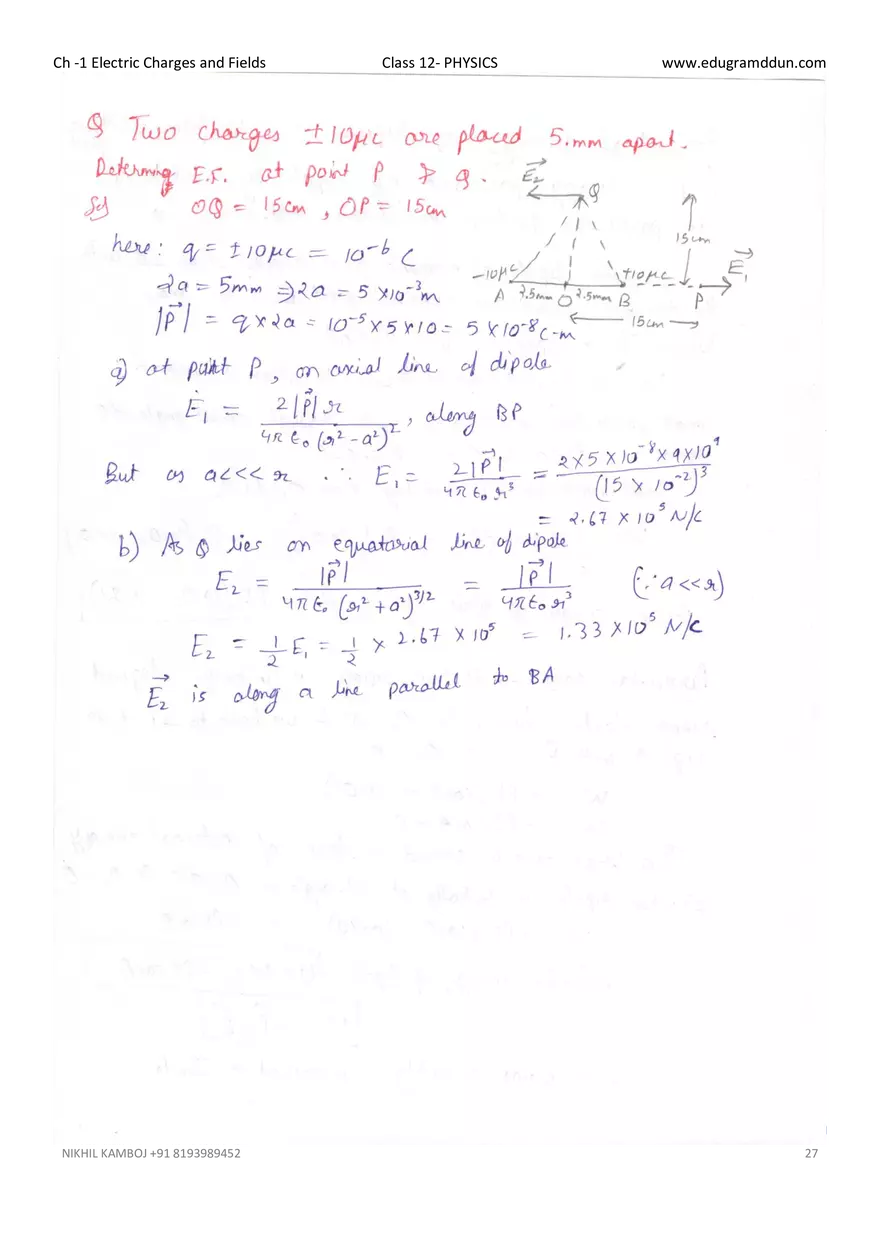 Ch -1 Electric Charges and Fields Class 12- PHYSICS www.edugramddun.com
Q Two charges ±10μc are placed 5.mm apart.
Determing E.F. at point P & Q.
Sol OQ = 15cm , OP = 15cm
here: q = ±10μc = 10⁻⁶ C
2a = 5mm ⇒ 2a = 5×10⁻³m
|P⃗| = q×2a = 10⁻⁵×5×10 = 5×10⁻⁸ C-m
E₂⃗
Q
15cm
-10μC +10μC E₁⃗
A 2.5mm O 2.5mm B P
15cm
a) at point P, on axial line of dipole
E₁ = 2|P⃗|r / 4πε₀(r²-a²)², along BP
But as a<<<r ∴ E₁ = 2|P⃗| / 4πε₀r³ = 2×5×10⁻⁸×9×10⁹ / (15×10⁻²)³
= 2.67×10⁵ N/C
b) As Q lies on equatarial line of dipole
E₂ = |P⃗| / 4πε₀(r²+a²)^3/2 = |P⃗| / 4πε₀r³ (∵ a<<r)
E₂ = 1/2 E₁ = 1/2 × 2.67×10⁵ = 1.33×10⁵ N/C
E₂⃗ is along a line parallel to BA
NIKHIL KAMBOJ +91 8193989452 27